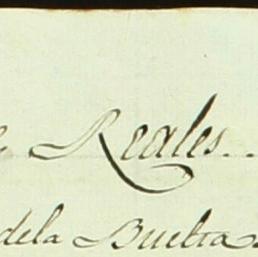 Reales..
dela Buelta